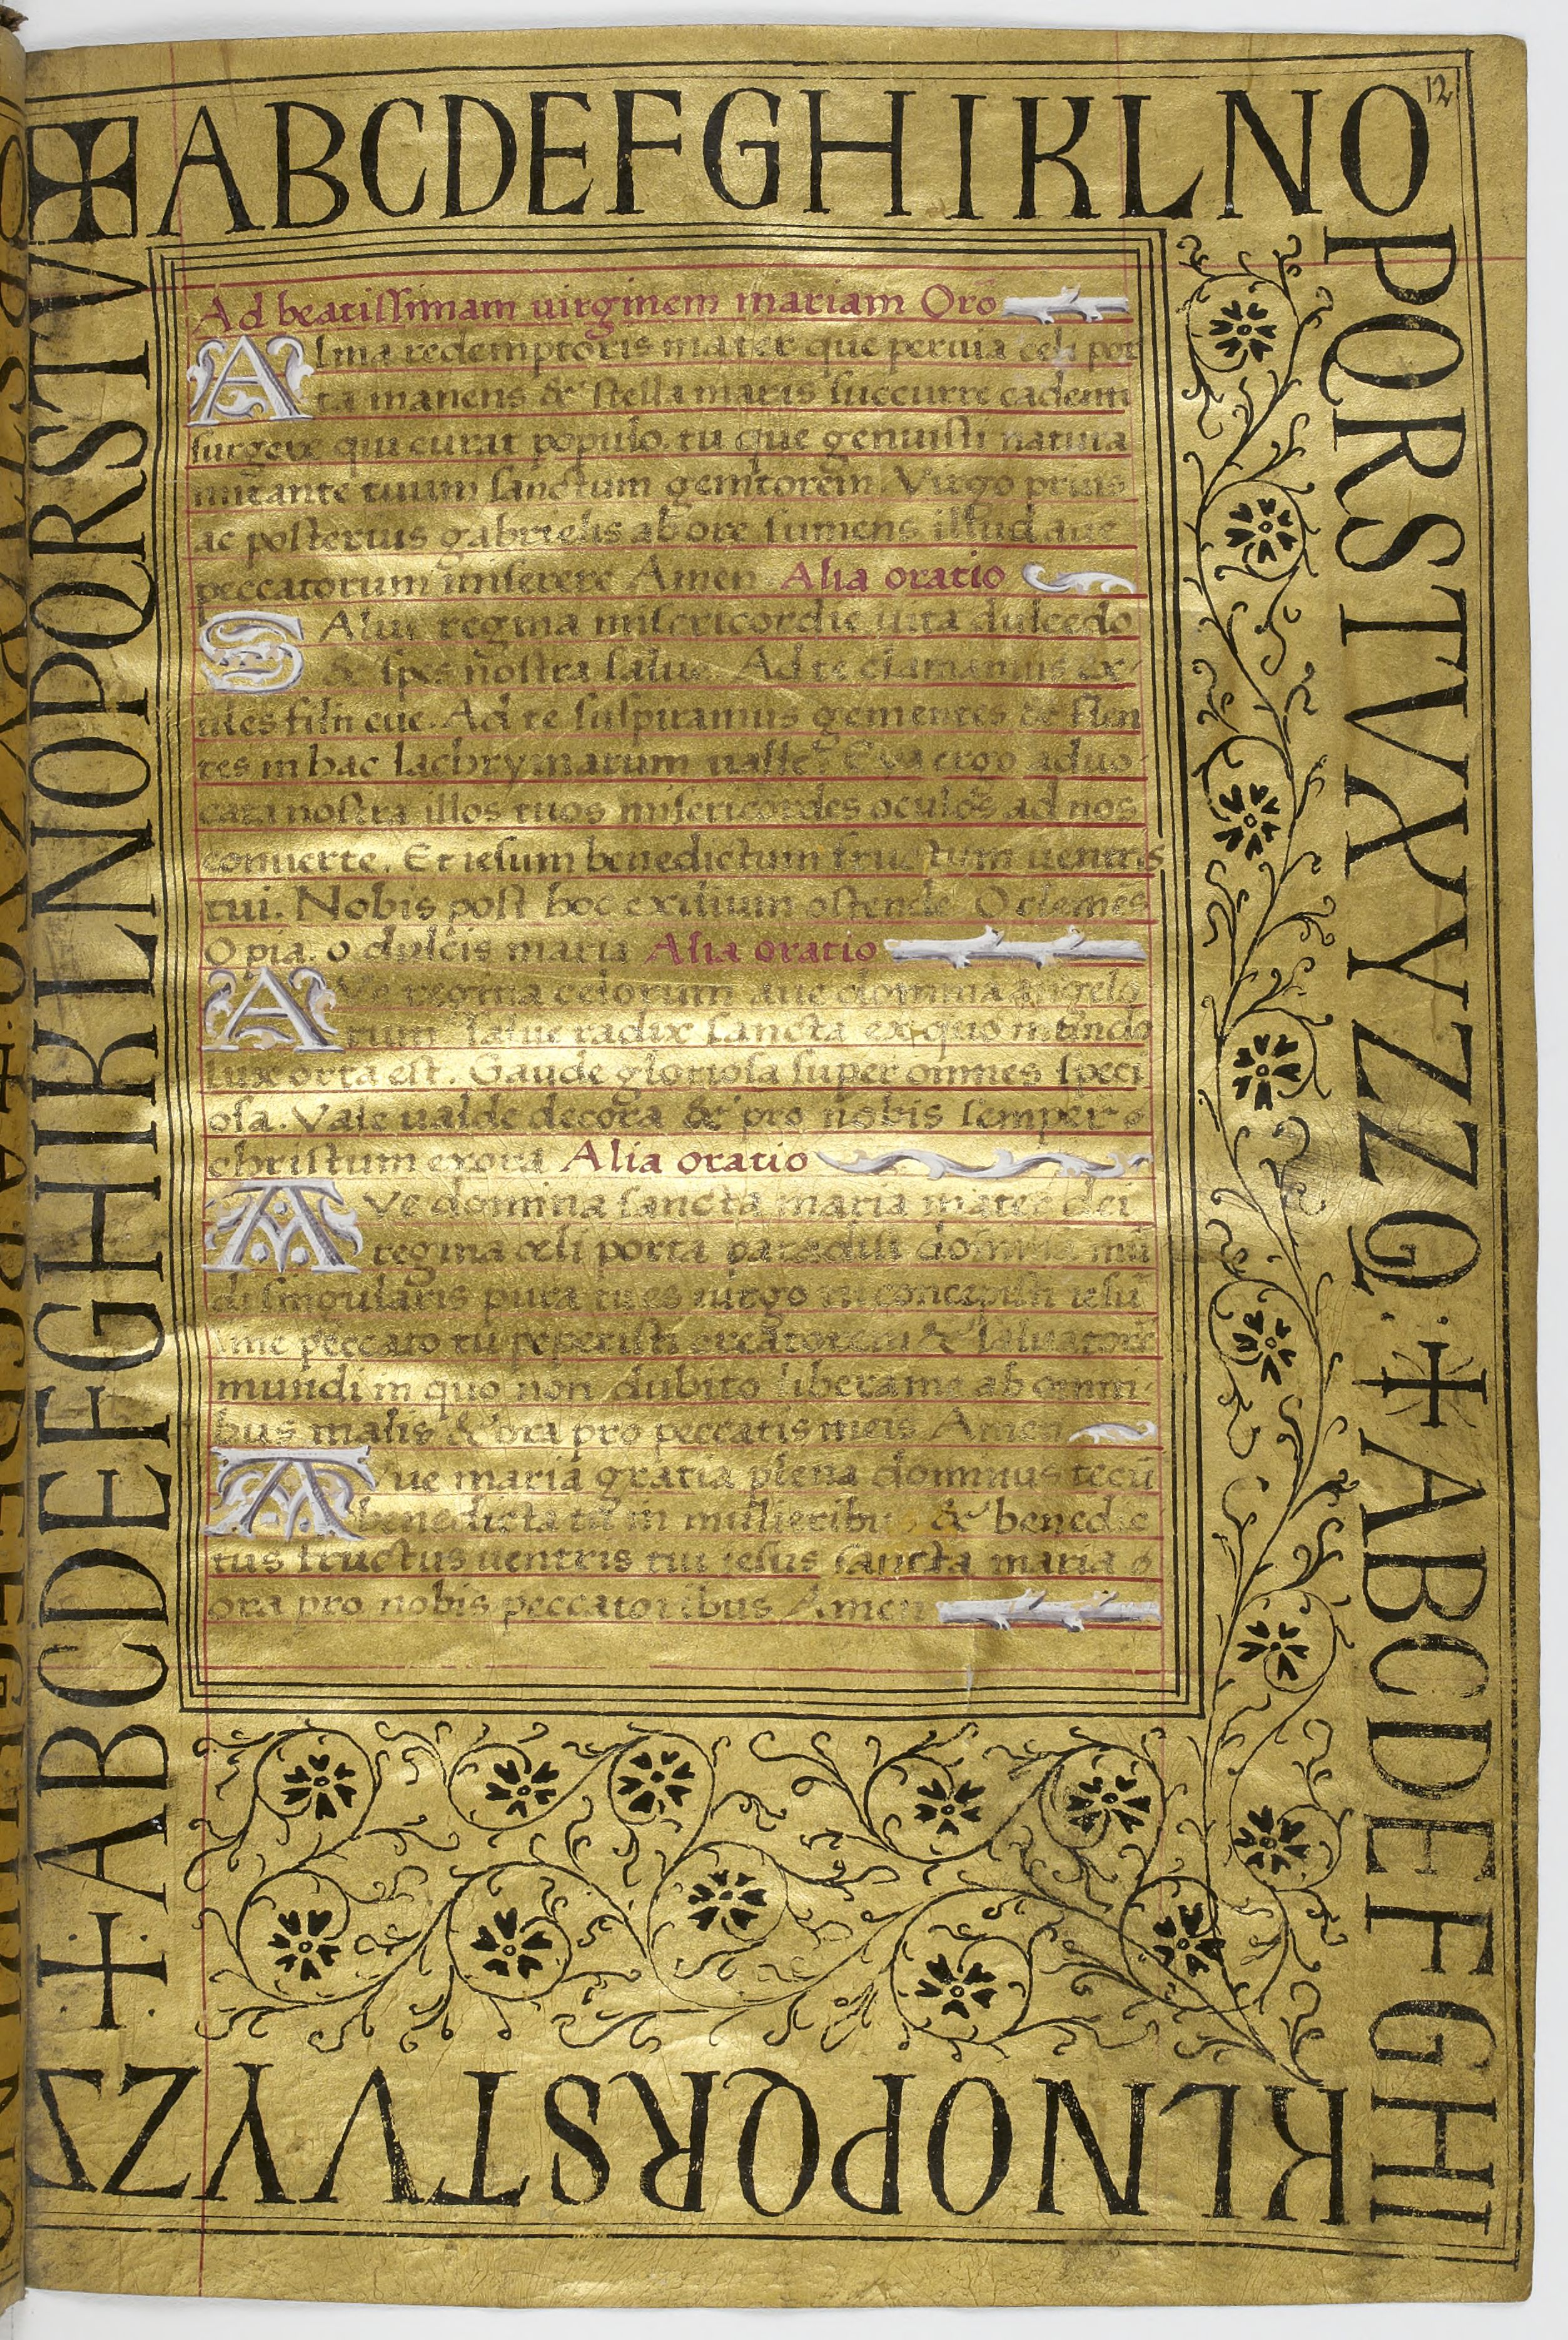 12
✠ABCDEFGHIKLNO
PQRSTVXYZZQ.✢ABCDEFGHI
KLNOPQRSTVYZ
✢ABCDEFGHIKLNOPQRSTV
Ad beatissimam uirginem mariam Oro
Alma redemptoris mater que peruia celi por
ta manens & stella maris succurre cadenti
surgere qui curat populo. tu que genuisti natura
mirante tuum sanctum genitorem Virgo prius
ac posterius gabrielis ab ore sumens illud aue
peccatorum miserere Amen Alia oratio
SAlue regina misericordie uita dulcedo
& spes nostra salue. Ad te clamamus ex
ules filii eue. Ad te suspiramus gementes & flen
tes in hac lachrymarum ualle. Eya ergo aduo
cata nostra illos tuos misericordes oculos ad nos
conuerte. Et iesum benedictum fructum uentris
tui. Nobis post hoc exilium ostende O clemēs
O pia. o dulcis maria Alia oratio
AVe regina celorum aue domina angelo
rum salue radix sancta ex quo mundo
lux orta est. Gaude gloriosa super omnes speci
osa. Vale ualde decora & pro nobis semper
christum exora Alia oratio
AVe domina sancta maria mater dei
regina celi porta paradisi domina mū
di singularis pura tu es uirgo tu concepisti iesū
sine peccato tu peperisti creatorem & saluatorē
mundi in quo non dubito libera me ab omni
bus malis & ora pro peccatis meis Amen
Aue maria gratia plena dominus tecū
benedicta tu in mulieribus & benedic
tus fructus uentris tui iesus sancta maria
ora pro nobis peccatoribus Amen